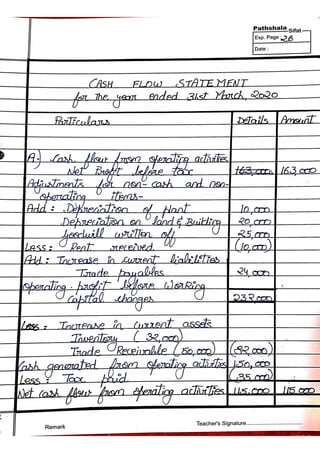 Pathshala Sifat
Exp. Page 26
Date :
CASH FLOW STATEMENT
for the year ended 31st March, 2020
Particulars Details Amount
A.) Cash flow from operating activities
Net Profit before tax 163,000 163,000
Adjustments for non-cash and non-
operating items-
Add : Depreciation of Plant 10,000
Depreciation on land & Building 20,000
goodwill written off 25,000
Less : Rent received. (10,000)
Add : Increase in current liabilities
Trade payables 24,000
operating profit before working
capital changes 232,000
Less : Increase in current assets
Inventory (32,000)
Trade Receivable (50,000) (82,000)
Cash generated from operating activities 150,000
Less : Tax paid (35,000)
Net cash flow from operating activities 115,000 115,000
Remark Teacher's Signature